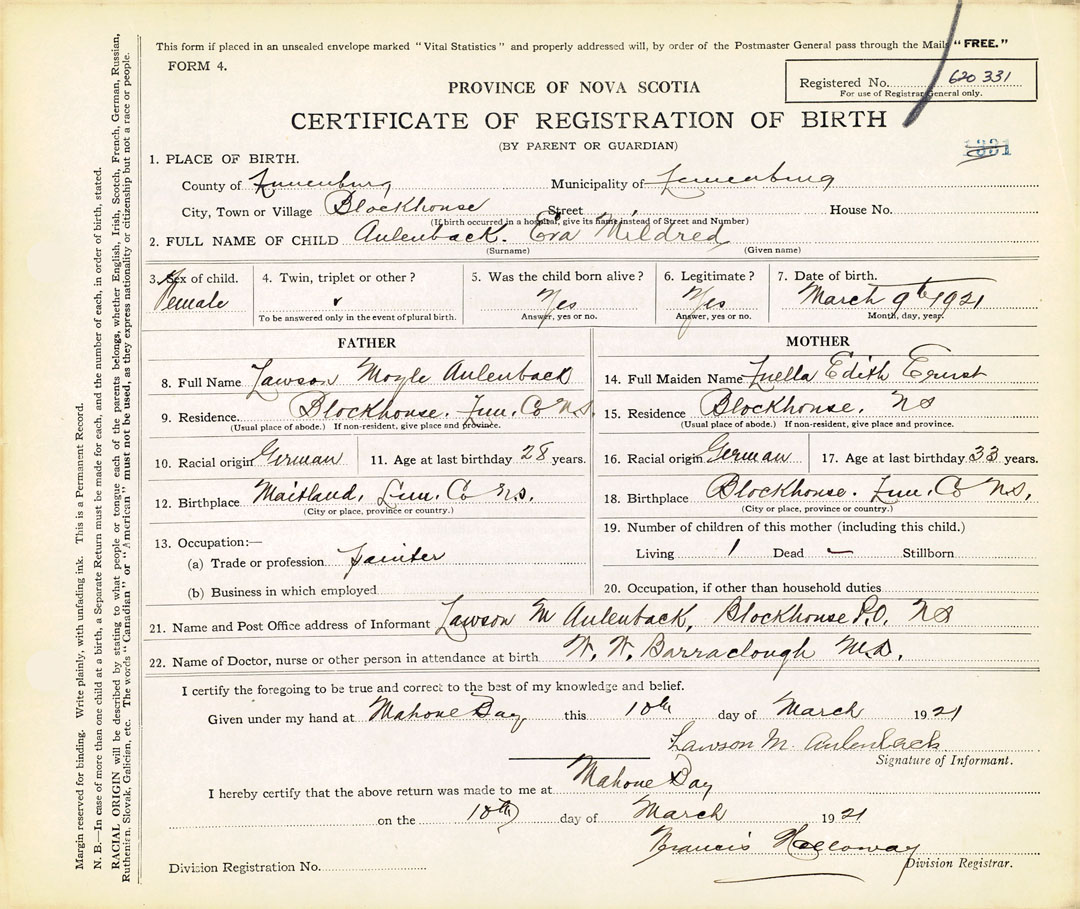 This form if placed in an unsealed envelope marked "Vital Statistics" and properly addressed will, by order of the Postmaster General pass through the Mails "FREE."
FORM 4.
Registered No. 620 331
For use of Registrar General only.
PROVINCE OF NOVA SCOTIA
CERTIFICATE OF REGISTRATION OF BIRTH
(BY PARENT OR GUARDIAN)
1. PLACE OF BIRTH.
County of Lunenburg Municipality of Lunenburg
City, Town or Village Blockhouse Street House No.
(If birth occurred in a hospital, give its name instead of Street and Number)
2. FULL NAME OF CHILD Aulenback. Eva Mildred
(Surname) (Given name)
3. Sex of child. 4. Twin, triplet or other? 5. Was the child born alive? 6. Legitimate? 7. Date of birth.
Female Yes Yes March 9th 1921
To be answered only in the event of plural birth. Answer, yes or no. Answer, yes or no. Month, day, year.
FATHER MOTHER
8. Full Name Lawson Moyle Aulenback 14. Full Maiden Name Luella Edith Ernst
9. Residence. Blockhouse. Lun. Co N.S. 15. Residence Blockhouse. NS
(Usual place of abode.) If non-resident, give place and province. (Usual place of abode.) If non-resident, give place and province.
10. Racial origin German 11. Age at last birthday 28 years. 16. Racial origin German 17. Age at last birthday 33 years.
12. Birthplace Maitland, Lun. Co N.S. 18. Birthplace Blockhouse. Lun. Co N.S.
(City or place, province or country.) (City or place, province or country.)
13. Occupation:— 19. Number of children of this mother (including this child.)
(a) Trade or profession Painter Living 1 Dead — Stillborn
(b) Business in which employed 20. Occupation, if other than household duties
21. Name and Post Office address of Informant Lawson M Aulenback, Blockhouse P.O. NS
22. Name of Doctor, nurse or other person in attendance at birth W. W. Barraclough M.D.
I certify the foregoing to be true and correct to the best of my knowledge and belief.
Given under my hand at Mahone Bay this 10th day of March 1921
Lawson M. Aulenback
Signature of Informant.
I hereby certify that the above return was made to me at Mahone Bay
on the 10th day of March 1921
Francis Holloway
Division Registration No. Division Registrar.
Margin reserved for binding. Write plainly, with unfading ink. This is a Permanent Record.
N. B.—In case of more than one child at a birth, a Separate Return must be made for each, and the number of each, in order of birth, stated.
RACIAL ORIGIN will be described by stating to what people or tongue each of the parents belongs, whether English, Irish, Scotch, French, German, Russian,
Ruthenian, Slovak, Galician, etc. The words "Canadian" or "American" must not be used, as they express nationality or citizenship but not a race or people.